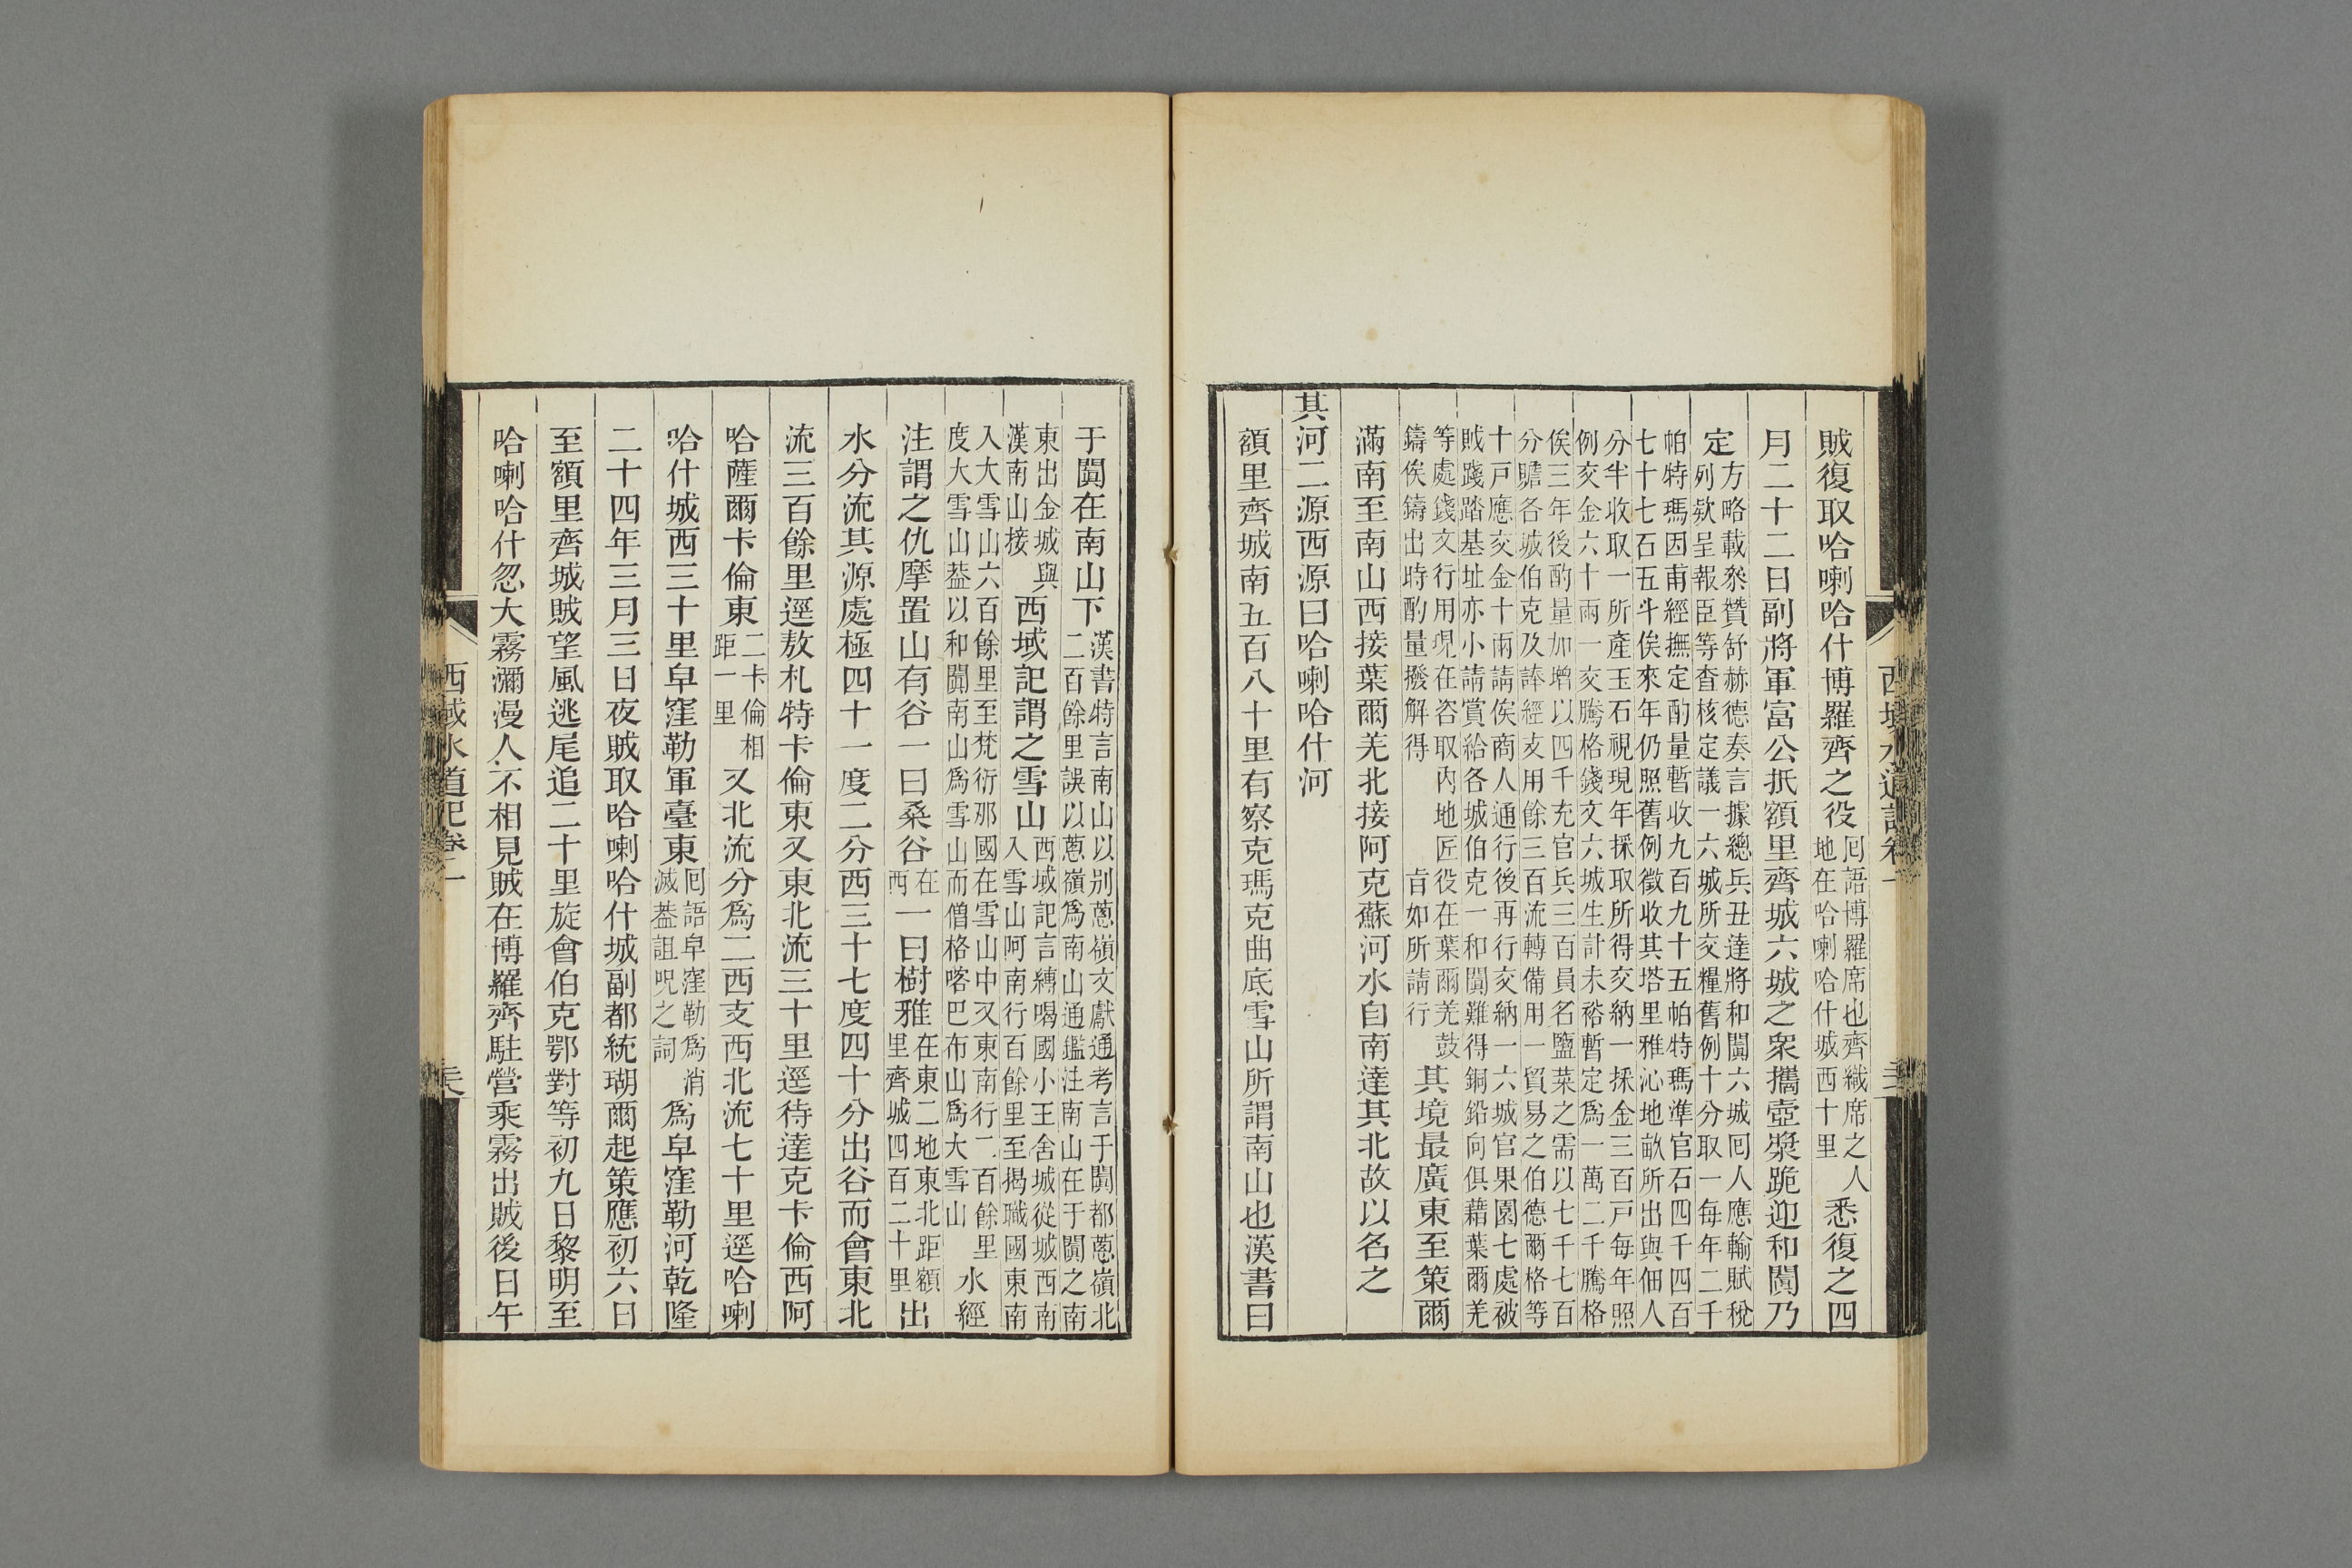 賊復取哈喇哈什博羅齊之役回語博羅席也齊織席之人地在哈喇哈什城西十里悉復之四
月二十二日副將軍富公扺額里齊城六城之衆攜壺漿跪迎和闐乃
定方略載叅贊舒赫德奏言據總兵丑達將和闐六城回人應輸賦稅列欵呈報臣等查核定議一六城所交糧舊例十分取一每年二千
帕特瑪因甫經撫定酌量暫收九百九十五帕特瑪準官石四千四百七十七石五斗俟來年仍照舊例徵收其塔里雅沁地畝所出與佃人
分半收取一所產玉石視現年採取所得交納一採金三百戸每年照例交金六十兩一交騰格錢文六城生計未裕暫定爲一萬二千騰格
俟三年後酌量加增以四千充官兵三百員名鹽菜之需以七千七百分贍各城伯克及諱經支用餘三百流轉備用一貿易之伯德爾格等
十戸應交金十兩請俟商人通行後再行交納一六城官果園七處被賊踐踏基址亦小請賞給各城伯克一和闐難得銅鉛向俱藉葉爾羌
等處錢文行用現在咨取內地匠役在葉爾羌鼓鑄俟鑄出時酌量撥解得㫖如所請行其境最廣東至策爾
滿南至南山西接葉爾羌北接阿克蘇河水自南達其北故以名之
其河二源西源曰哈喇哈什河
額里齊城南五百八十里有察克瑪克曲底雪山所謂南山也漢書曰
于闐在南山下漢書特言南山以别蔥嶺文獻通考言于闐都蔥嶺北二百餘里誤以蔥嶺爲南山通鑑注南山在于闐之南
東出金城與漢南山接西域記謂之雪山西域記言縛喝國小王舍城從城西南入雪山阿南行百餘里至揭職國東南
入大雪山六百餘里至梵衍那國在雪山中又東南行二百餘里度大雪山葢以和闐南山爲雪山而僧格喀巴布山爲大雪山水經
注謂之仇摩置山有谷一曰桑谷在西一曰樹雅在東二地東北距額里齊城四百二十里出
水分流其源處極四十一度二分西三十七度四十分出谷而會東北
流三百餘里逕敖札特卡倫東又東北流三十里逕待達克卡倫西阿
哈薩爾卡倫東二卡倫相距一里又北流分爲二西支西北流七十里逕哈喇
哈什城西三十里皁窪勒軍臺東回語皁窪勒爲消滅葢詛咒之詞爲皁窪勒河乾隆
二十四年三月三日夜賊取哈喇哈什城副都統瑚爾起策應初六日
至額里齊城賊望風逃尾追二十里旋會伯克鄂對等初九日黎明至
哈喇哈什忽大霧瀰漫人不相見賊在博羅齊駐營乘霧出賊後日午
西域水道記卷一